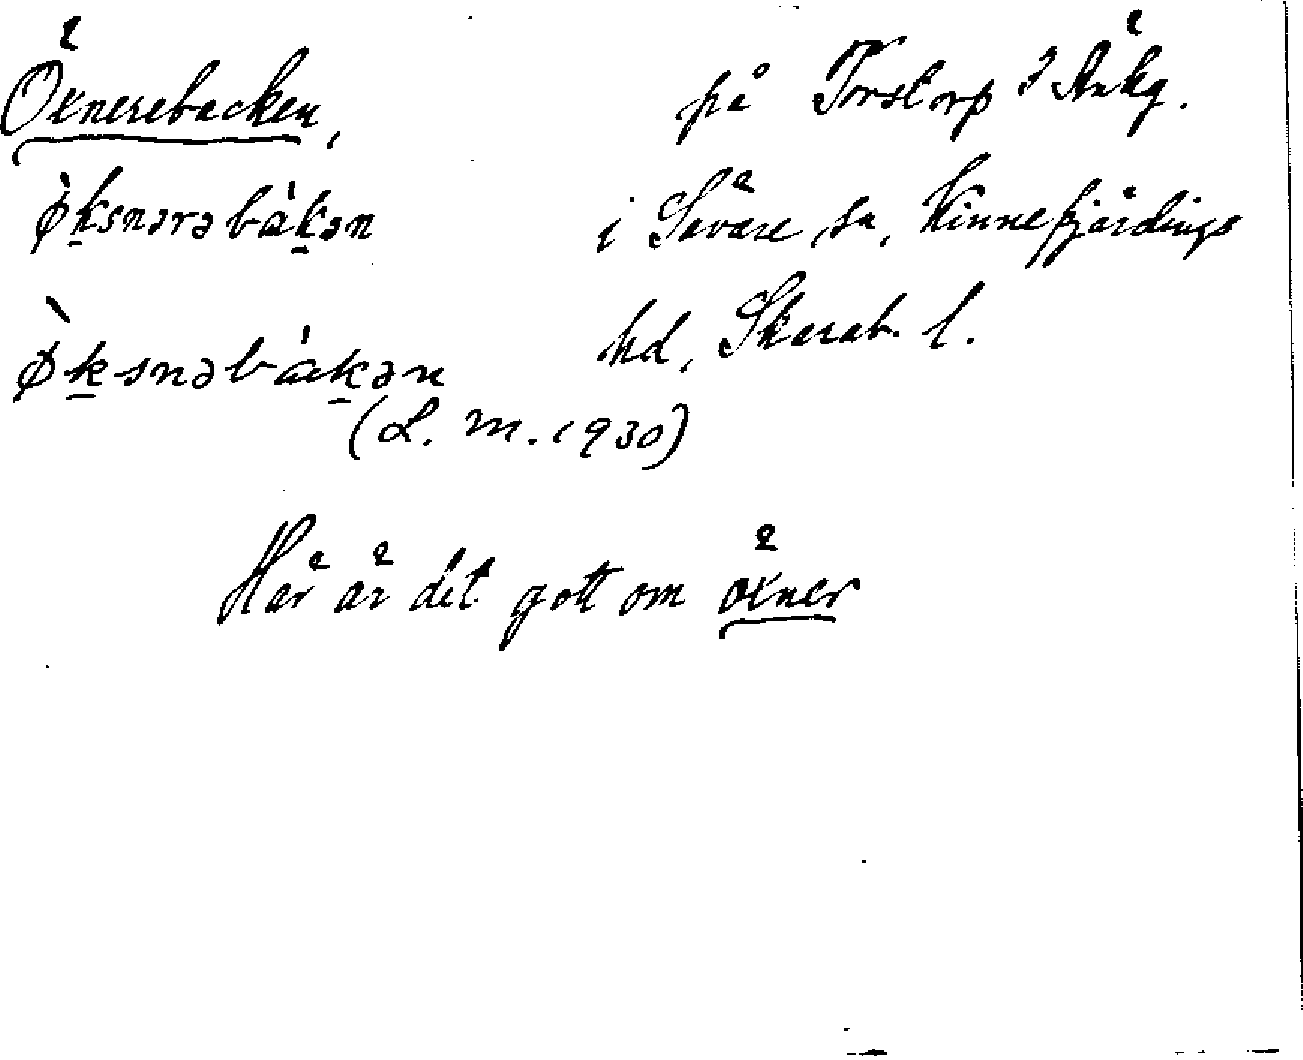 Öxnerebacken, på Torstorp 3 Änkg.
ø̀ḵsnərəbáḵən i Sävare sn, Kinnefjärdings
ø̀ḵsnəbáḵən hd, Skarab. l.
(L. m. 1930)
Här är det gott om öxner